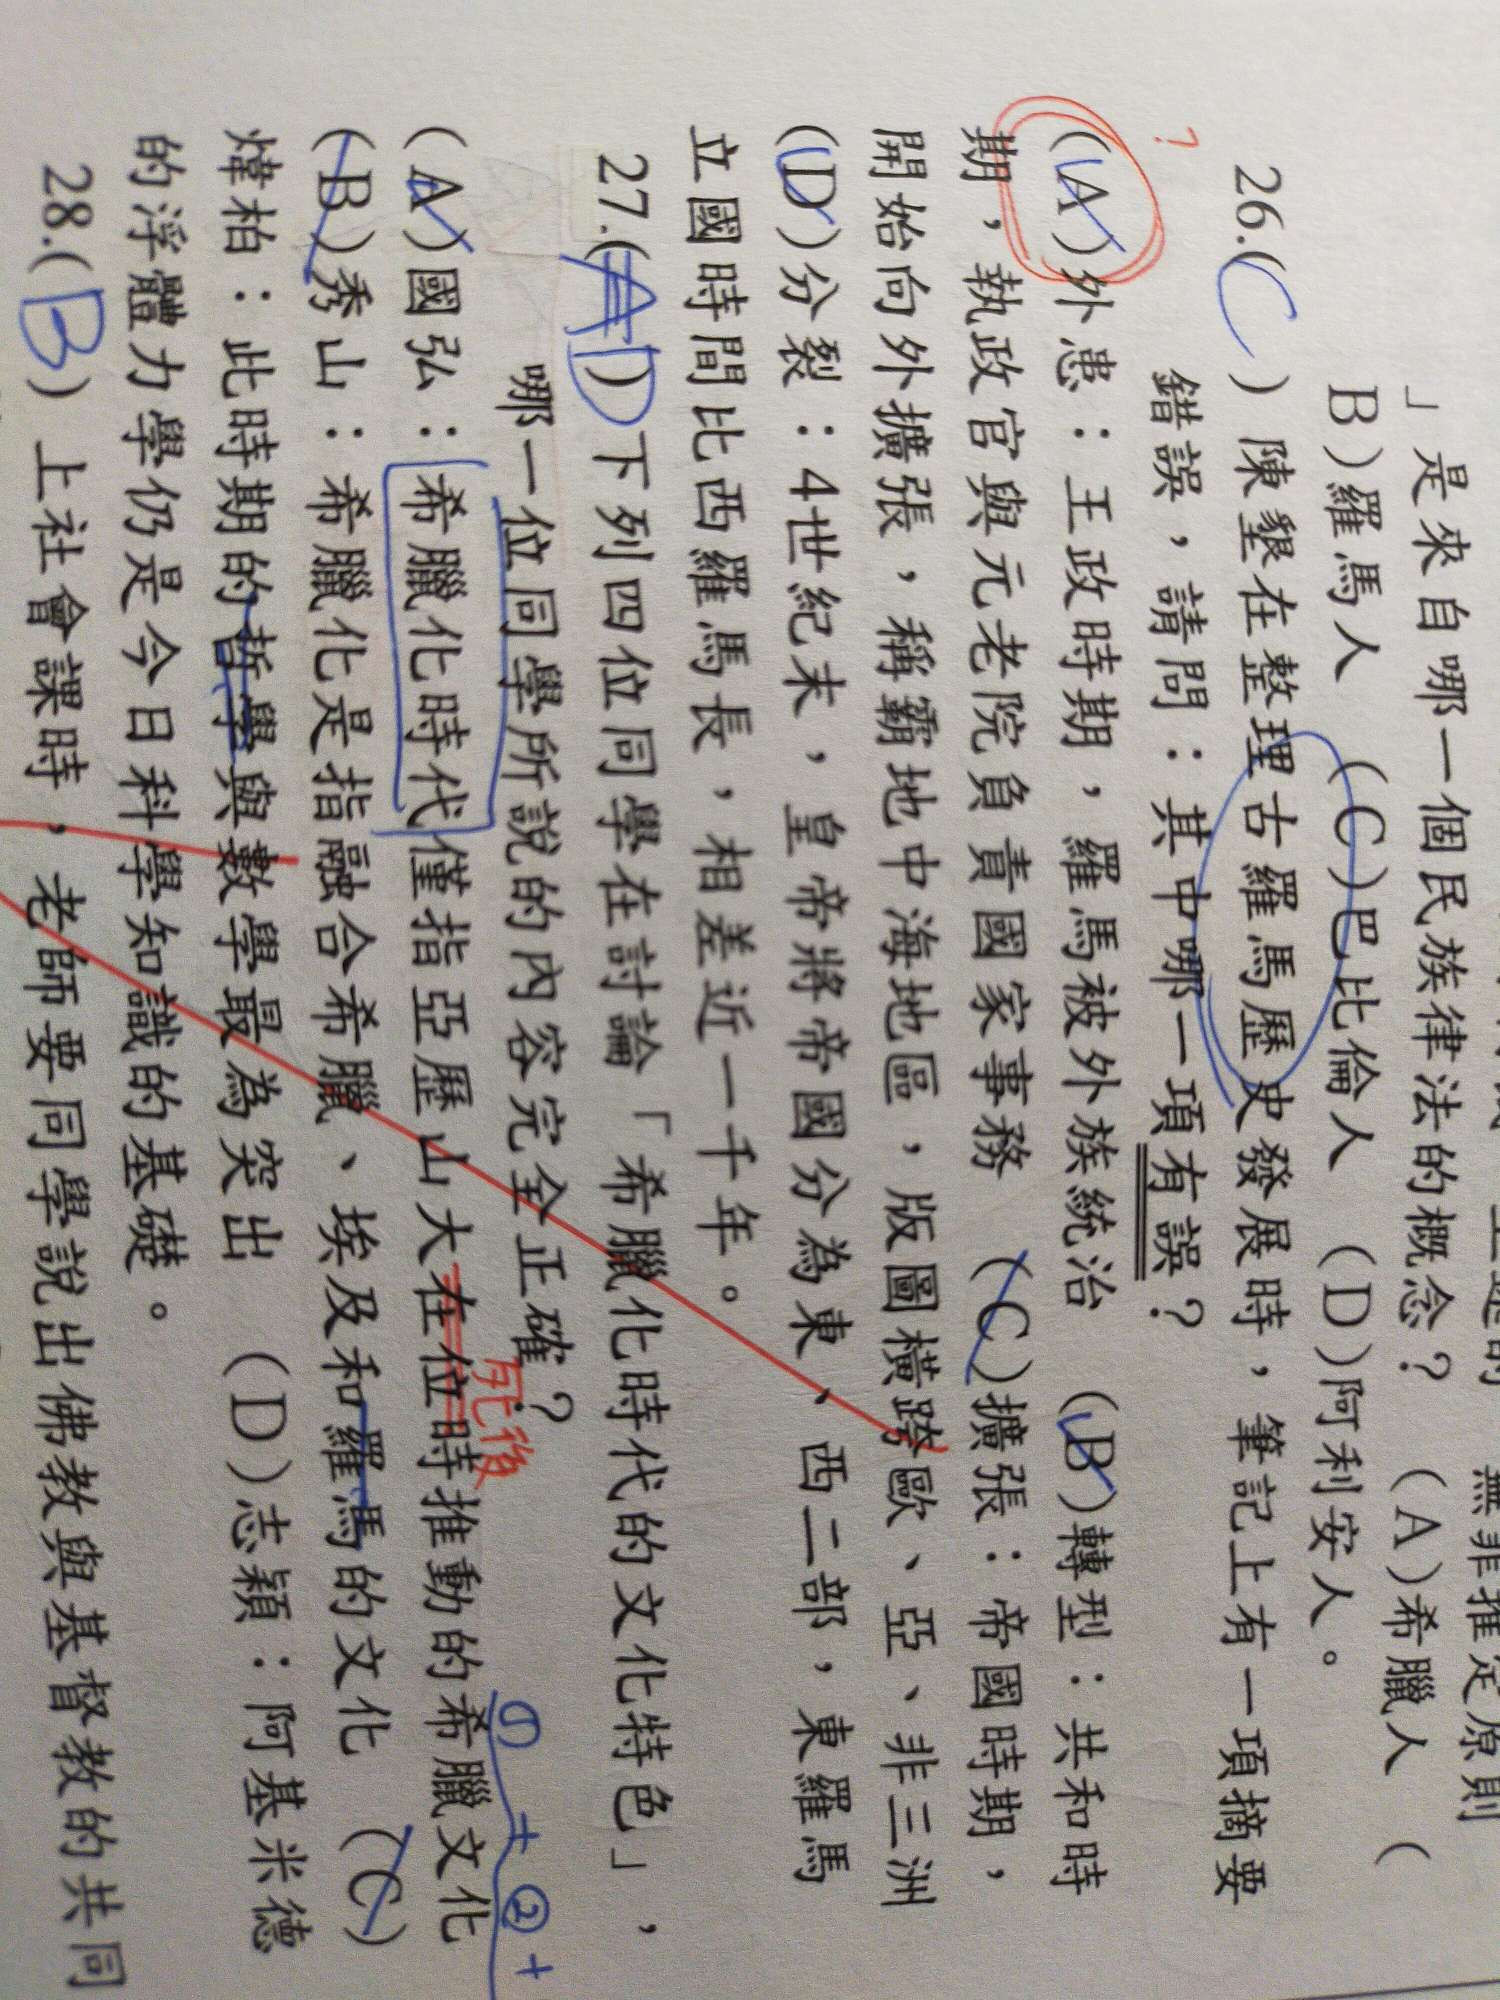 」是來自哪一個民族律法的概念？ (A)希臘人 (
B)羅馬人 (C)巴比倫人 (D)阿利安人。
26.(C) 陳墾在整理古羅馬歷史發展時，筆記上有一項摘要
錯誤，請問：其中哪一項有誤？
?
(A)外患：王政時期，羅馬被外族統治 (B)轉型：共和時
期，執政官與元老院負責國家事務 (C)擴張：帝國時期，
開始向外擴張，稱霸地中海地區，版圖橫跨歐、亞、非三洲
(D)分裂：4世紀末，皇帝將帝國分為東、西二部，東羅馬
立國時間比西羅馬長，相差近一千年。
27.(D)下列四位同學在討論「希臘化時代的文化特色」，
哪一位同學所說的內容完全正確？
死後
① + ② +
(A)國弘：希臘化時代僅指亞歷山大在位時推動的希臘文化
(B)秀山：希臘化是指融合希臘、埃及和羅馬的文化 (C)
煒柏：此時期的哲學與數學最為突出 (D)志穎：阿基米德
的浮體力學仍是今日科學知識的基礎。
28.(B) 上社會課時，老師要同學說出佛教與基督教的共同